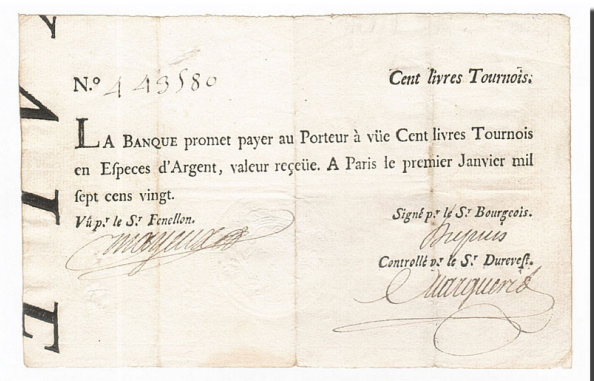 N.º 443580
Cent livres Tournois.
LA BANQUE promet payer au Porteur à vüe Cent livres Tournois
en Especes d'Argent, valeur reçeüe. A Paris le premier Janvier mil
sept cens vingt.
Vû p.r le S.r Fenellon.
Signé p.r le S.r Bourgeois.
Controllé p.r le S.r Durevest.